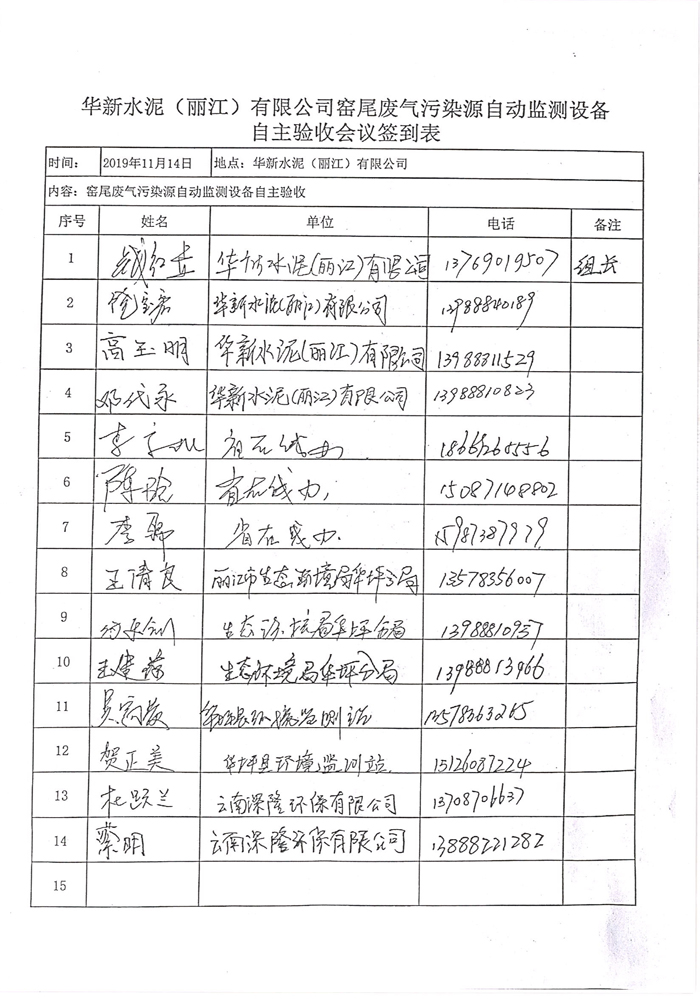 华新水泥（丽江）有限公司窑尾废气污染源自动监测设备
自主验收会议签到表
时间： 2019年11月14日 地点：华新水泥（丽江）有限公司
内容：窑尾废气污染源自动监测设备自主验收
序号 姓名 单位 电话 备注
1 华新水泥(丽江)有限公司 13769019507 组长
2 华新水泥(丽江)有限公司 13988840189
3 高玉明 华新水泥(丽江)有限公司 13988811529
4 邓代永 华新水泥(丽江)有限公司 13988810823
5 李
6 陈玲 省在线办 15087148802
7 李 省在线办 15987387979
8 王清良 丽江市生态环境局华坪分局 13578356007
9 生态环境局华坪分局 13988810937
10 生态环境局华坪分局 13988813966
11 吴 环境监测站 13578363265
12 贺正美 华坪县环境监测站 15126087224
13 杜跃兰 云南深隆环保有限公司 13708706637
14 蔡明 云南深隆环保有限公司 13888221282
15